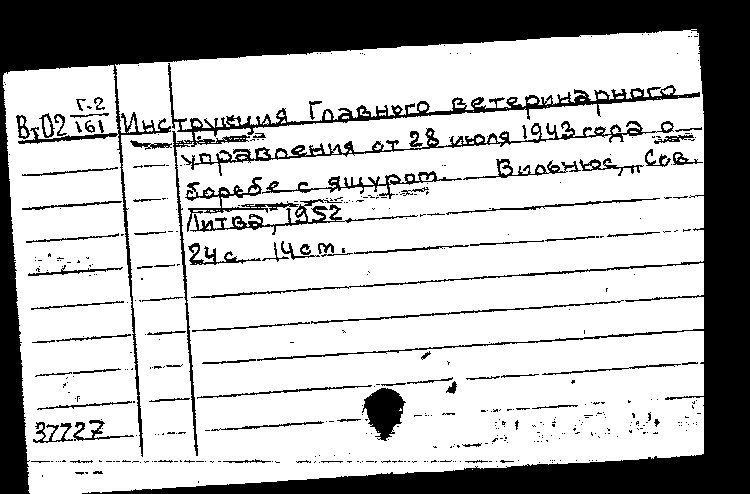 Вт02 Г-2/161 Инструкция Главного ветеринарного
управления от 28 июля 1943 года о
борьбе с ящуром. Вильнюс, "Сов.
Литва", 1952.
24 с. 14 см.
37727